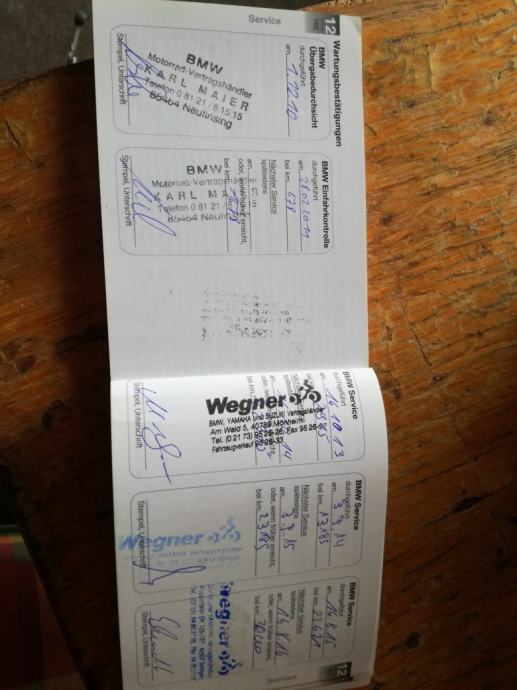 Service
12
160
Wartungsbestätigungen
BMW
Übergabedurchsicht
durchgeführt
am 1.12.10
BMW
Motorrad-Vertragshändler
KARL MAIER
Telefon 0 81 21 / 8 15 15
85464 Neufinsing
Stempel, Unterschrift
BMW Einfahrkontrolle
durchgeführt
am 28.02.2011
bei km 678
Nächster Service
spätestens
am
oder, wenn früher erreicht,
bei km
BMW
Motorrad-Vertragshändler
KARL MAIER
Telefon 0 81 21 /
85464 Neufinsing
Stempel, Unterschrift
BMW Service
durchgeführt
am 16.10.13
bei km
Nächster Service
spätestens
am
oder, wenn früher erreicht,
bei km
Wegner
BMW, YAMAHA und SUZUKI Vertragshändler
Am Wald 5, 40789 Monheim
Tel. (0 21 73) 95 26-26, Fax 95 26-27
Fahrzeugverkauf 95 26-33
Stempel, Unterschrift
BMW Service
durchgeführt
am 3.7.14
bei km 13185
Nächster Service
spätestens
am 3.7.15
oder, wenn früher erreicht,
bei km 23185
Wegner
Stempel, Unterschrift
BMW Service
durchgeführt
am 14.8.15
bei km 23621
Nächster Service
spätestens
am 14.8.16
oder, wenn früher erreicht,
bei km
Wegner
Stempel, Unterschrift
12
Service